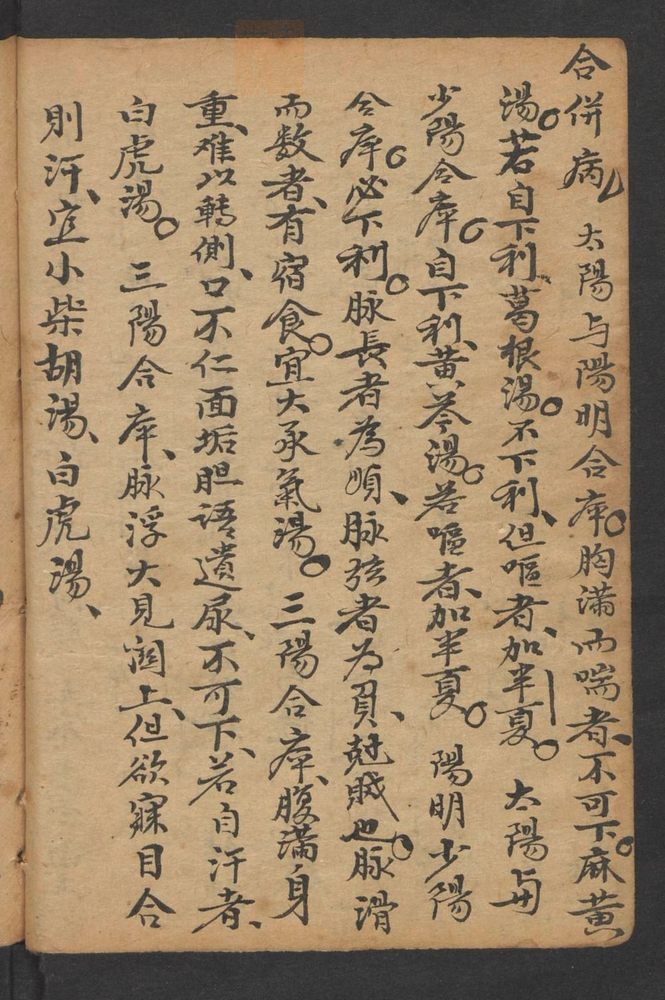 合併病 太陽与陽明合病。胸滿而喘者、不可下。麻黄
湯。若自下利、葛根湯。不下利、但嘔者、加半夏。 太陽与
少陽合病。自下利、黄芩湯。若嘔者、加半夏。 陽明少陽
合病。必下利。脉長者為順、脉弦者为負、尅賊也。脉滑
而数者、有宿食。宜大承氣湯。 三陽合病、腹滿身
重、难以轉側、口不仁面垢胆語遺尿、不可下、若自汗者、
白虎湯。 三陽合病、脉浮大見関上、但欲寐目合
則汗、宜小柴胡湯、白虎湯、